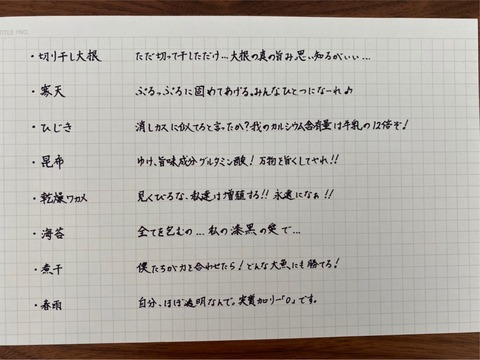 TITLE / NO.
・切り干し大根 ただ切って干しただけ…大根の真の旨み思い知るがいい…
・寒天 ぷるっぷるに固めてあげる。みんなひとつになーれ♪
・ひじき 消しカスに似てると言ったか?我のカルシウム含有量は牛乳の12倍ぞ!
・昆布 ゆけ、旨味成分グルタミン酸! 万物を旨くしてやれ!!
・乾燥ワカメ 見くびるな、私達は増殖する!! 永遠になぁ!!
・海苔 全てを包むの…私の漆黒の愛で…
・煮干 僕たちが力を合わせたら!どんな大魚にも勝てる!
・春雨 自分、ほぼ透明なんで。実質カロリー「0」です。